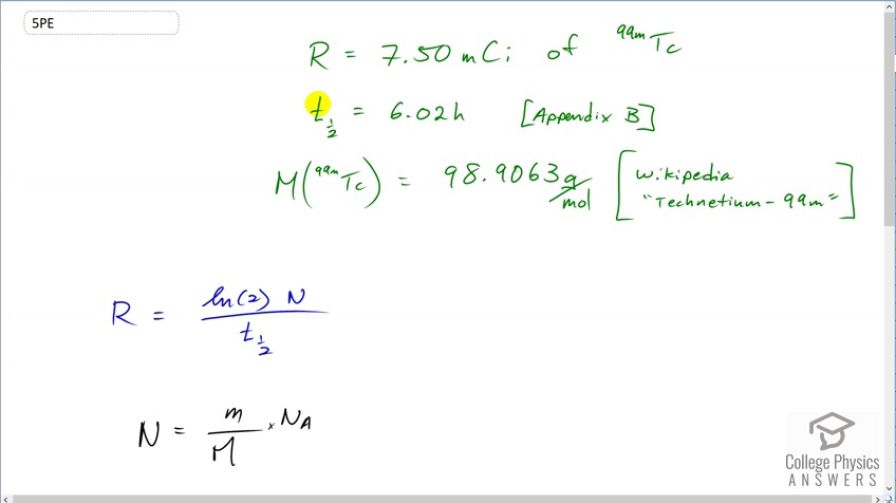 5PE
R = 7.50 mCi of ⁹⁹ᵐTc
t½ = 6.02h [Appendix B]
M(⁹⁹ᵐTc) = 98.9063 g/mol [Wikipedia
"Technetium-99m"]
R = ln(2) N / t½
N = m/M × N_A
College Physics
ANSWERS